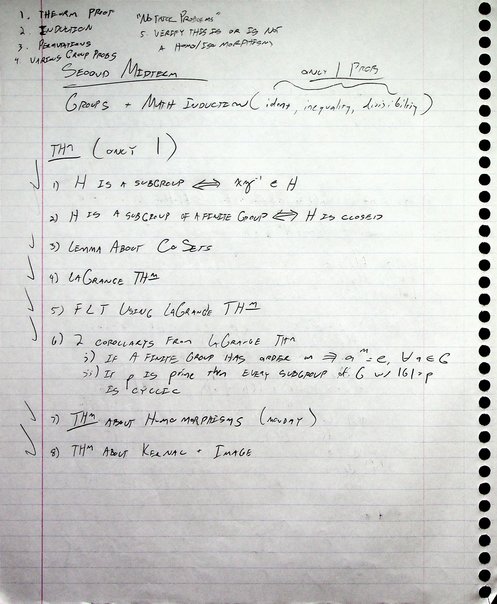 1. THEOREM PROOF "NOT THRE PROBLEMS"
2 INDUCTION 5. VERIFY THIS IS OR IS NOT
3. PERMUTATIONS A HOMO/ISO MORPHISM
4. VARIOUS GROUP PROBS
SECOND MIDTERM ONLY 1 PROB
GROUPS + MATH INDUCTION (ident, inequality, divisibility)
THM (ONLY 1)
1) H IS A SUBGROUP ⟺ xy⁻¹ ∈ H
2) H IS A SUBGROUP OF A FINITE GROUP ⟺ H IS CLOSED
3) LEMMA ABOUT COSETS
4) LAGRANGE THM
5) FLT USING LAGRANGE THM
6) 2 COROLLARYS FROM LAGRANGE THM
i) IF A FINITE GROUP HAS ORDER m ⇒ a^m = e, ∀ a ∈ G
ii) IF p IS PRIME THEN EVERY SUBGROUP OF G w/ |G| = p
IS CYCLIC
7) THM ABOUT HOMOMORPHISMS (MONDAY)
8) THM ABOUT KERNAL + IMAGE